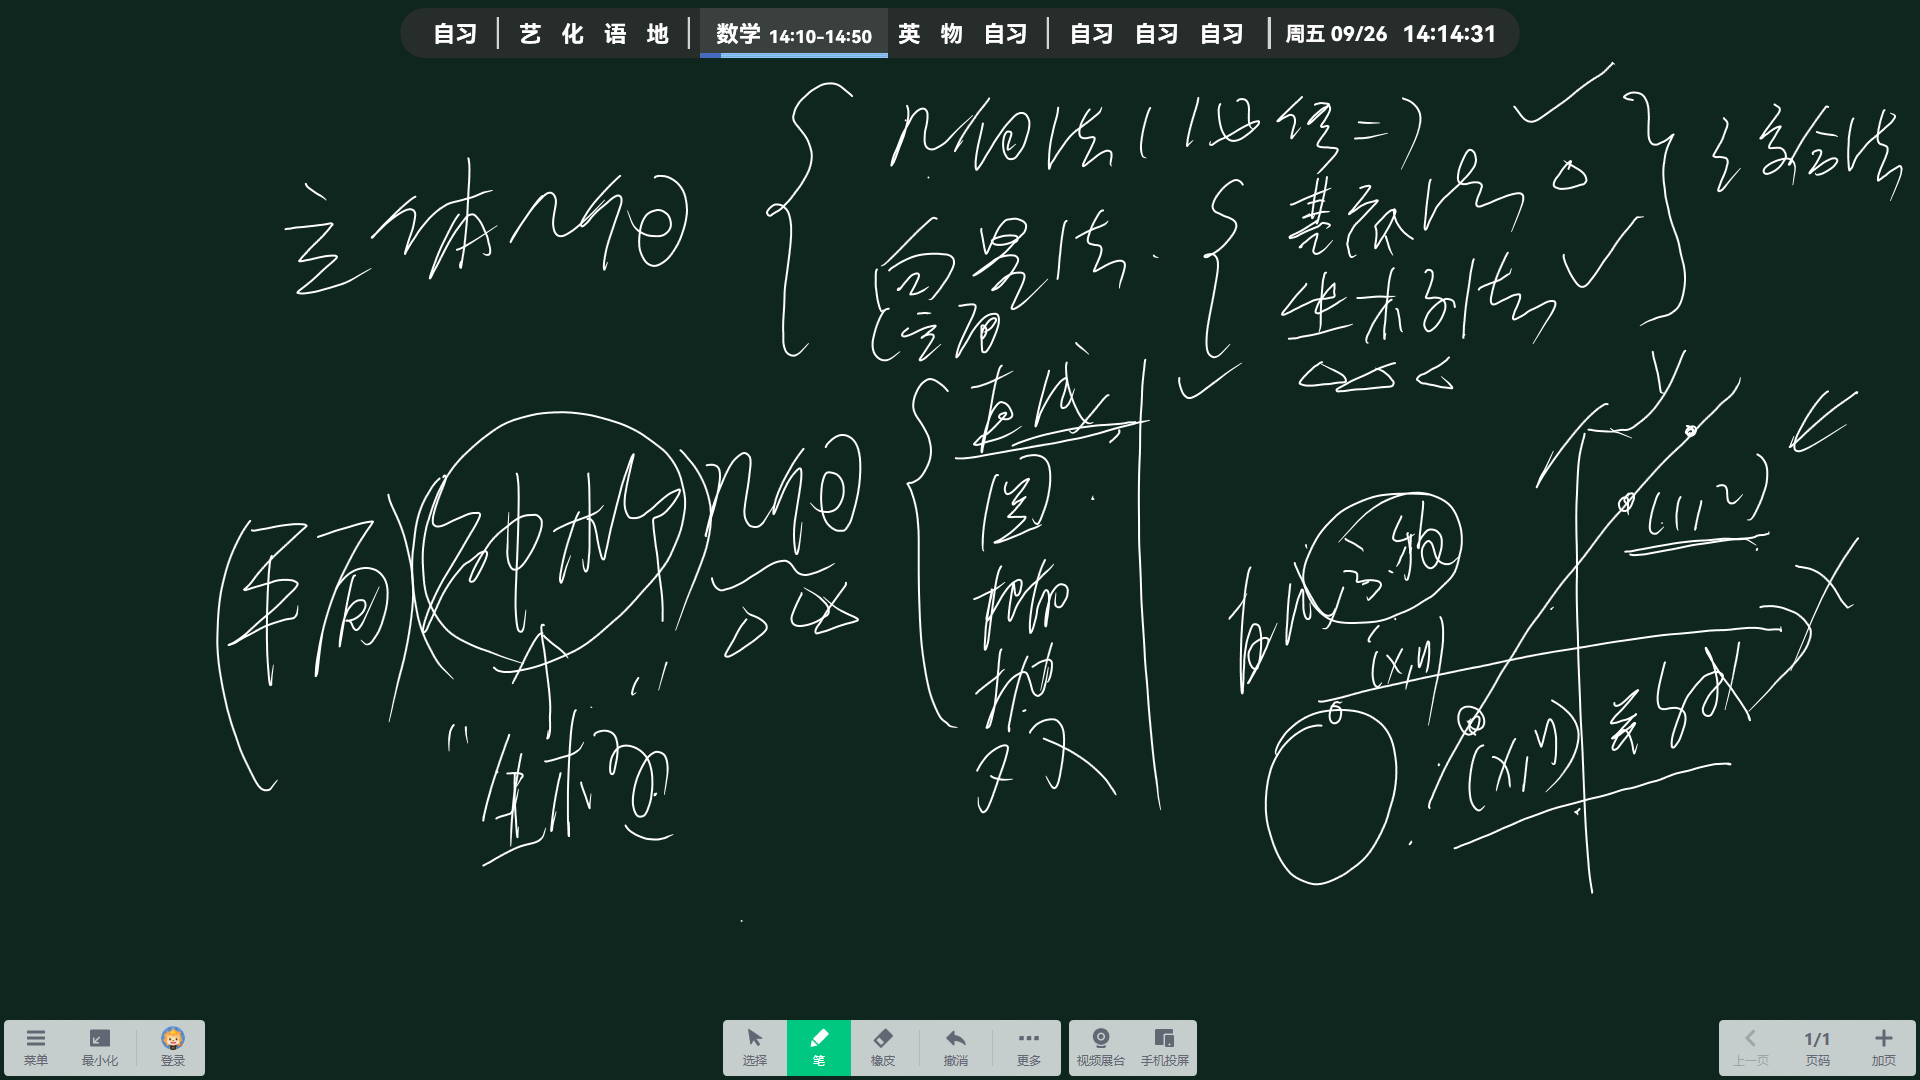 自习 艺 化 语 地 数学 14:10-14:50 英 物 自习 自习 自习 自习 周五 09/26 14:14:31
立体几何
几何法(必修二)
向量法
空间
基底法
坐标法
综合法
(平面)解析几何
"坐标"
直线
圆
椭
抛
双
(1,2)
(x,y)
(x,y)
y
x
菜单 最小化 登录 选择 笔 橡皮 撤消 更多 视频展台 手机投屏 上一页 1/1 页码 加页